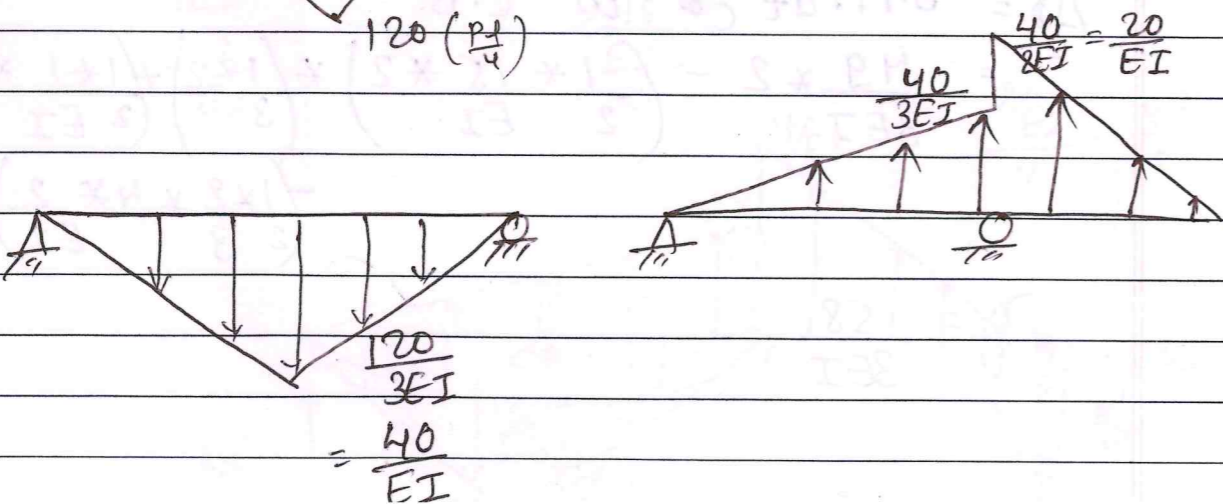 120 (Pl/4)
40/2EI = 20/EI
40/3EI
120/3EI
= 40/EI